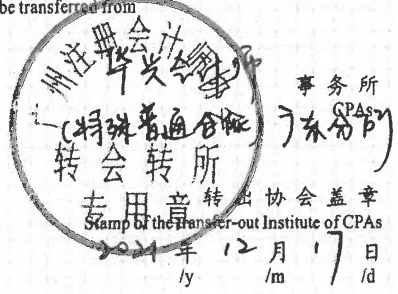 be transferred from
广州注册会计师
华兴会计师
事务所
CPAs
(特殊普通合伙) 广东分所
转会转所
专用章
转出协会盖章
Stamp of the transfer-out Institute of CPAs
2021 年 12 月 17 日
/y /m /d